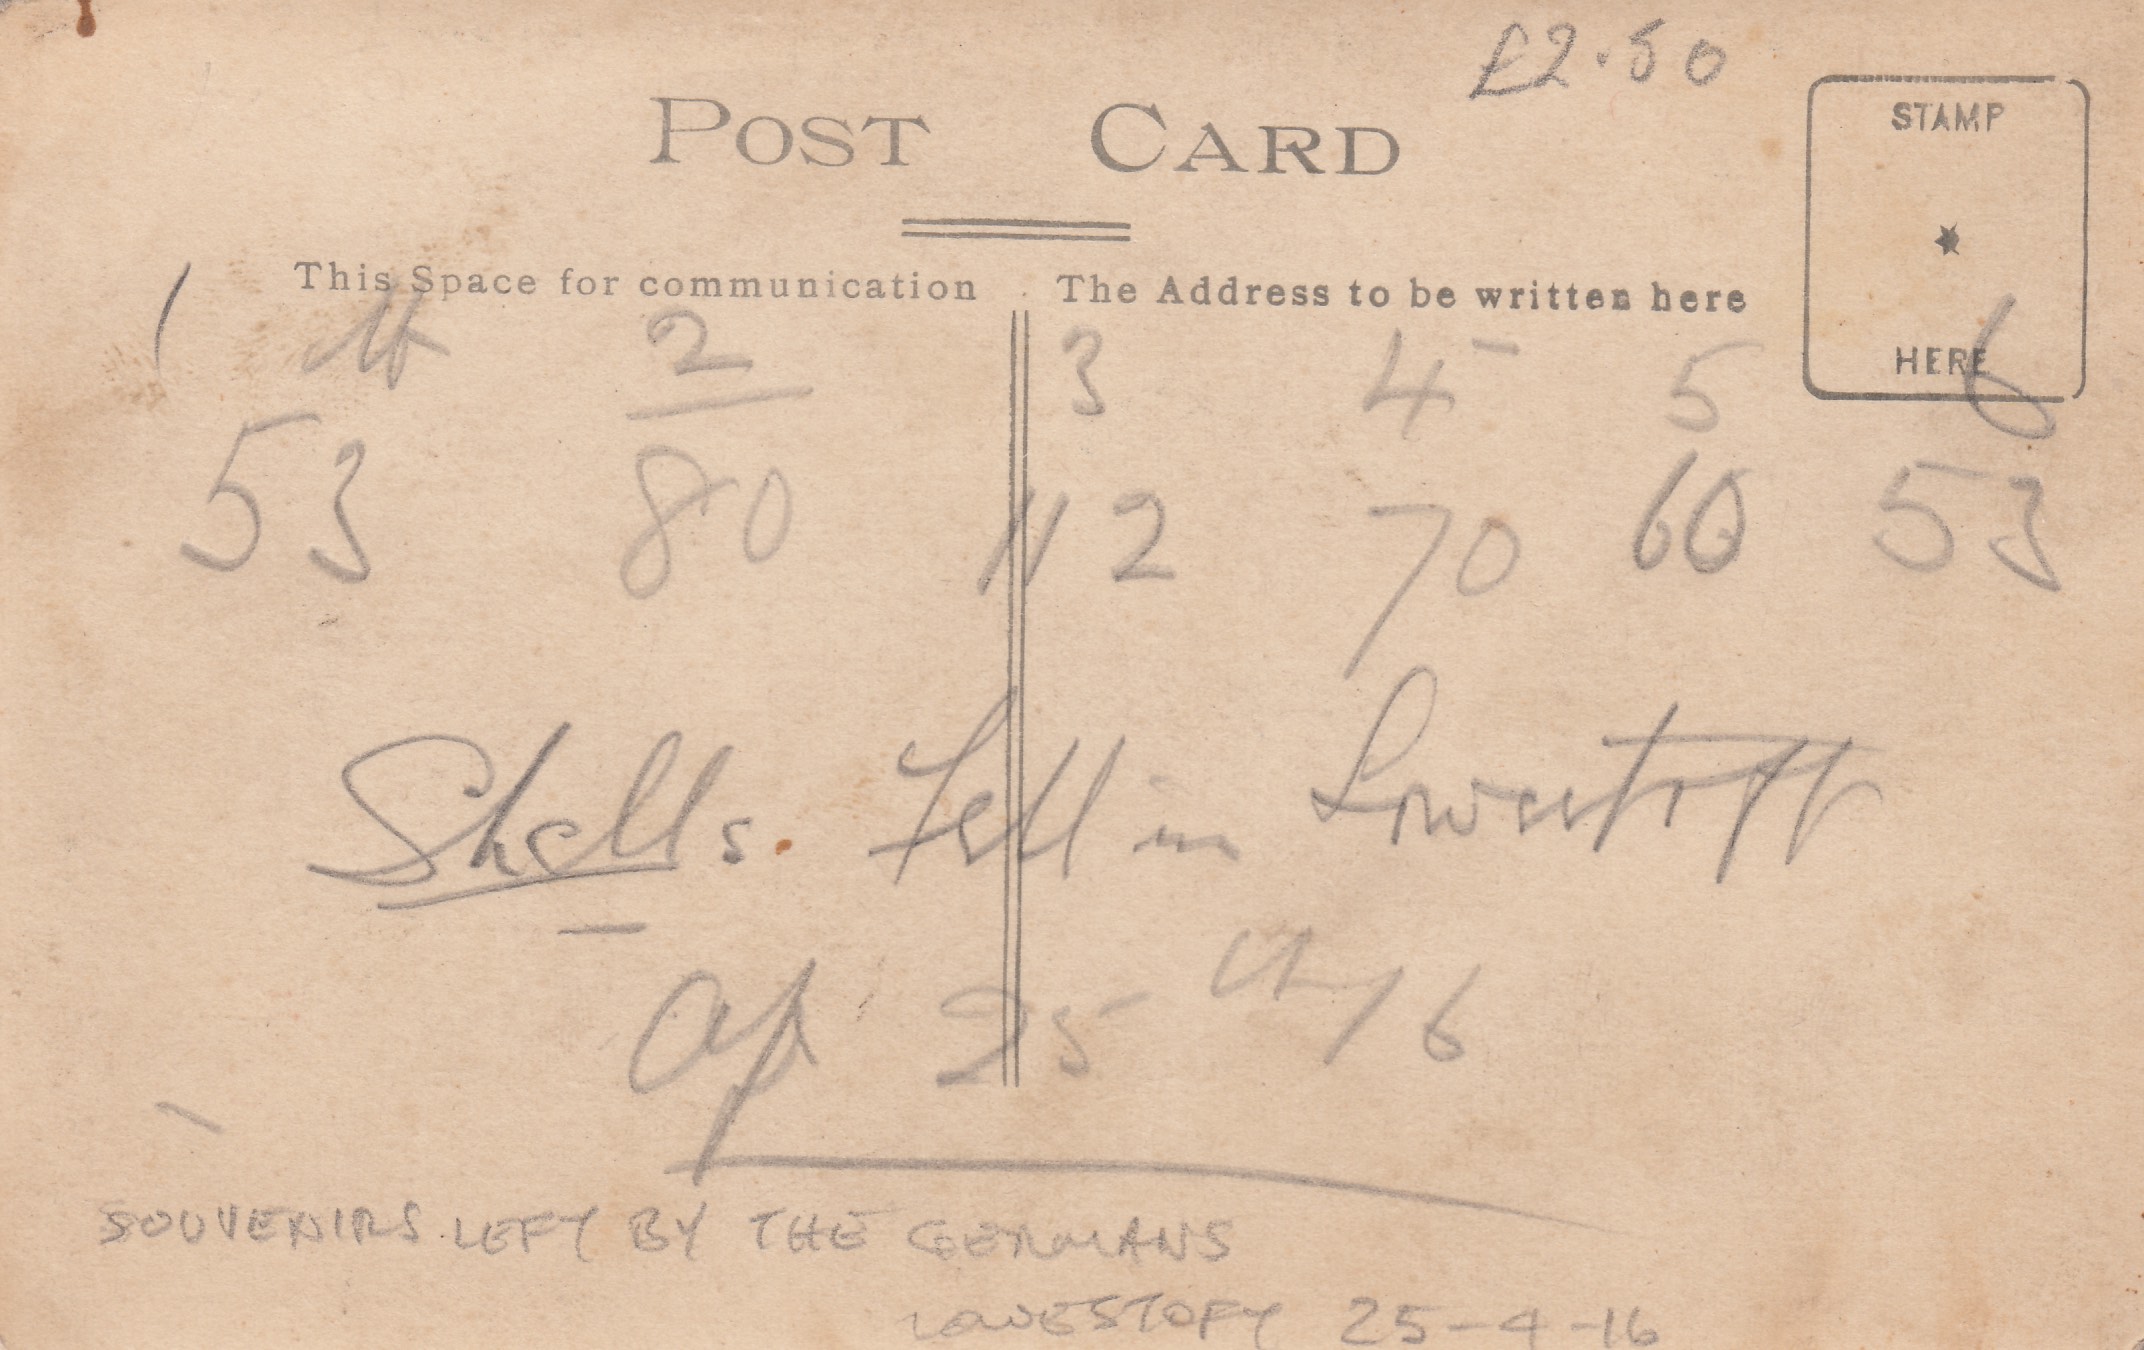 £2.50
POST CARD
STAMP
HERE
This Space for communication
The Address to be written here
1 lb 2 3 4 5 6
53 80 112 70 60 53
Shells. Fell in Lowestoff
Ap 25th 16
SOUVENIRS LEFT BY THE GERMANS
LOWESTOFT 25-4-16